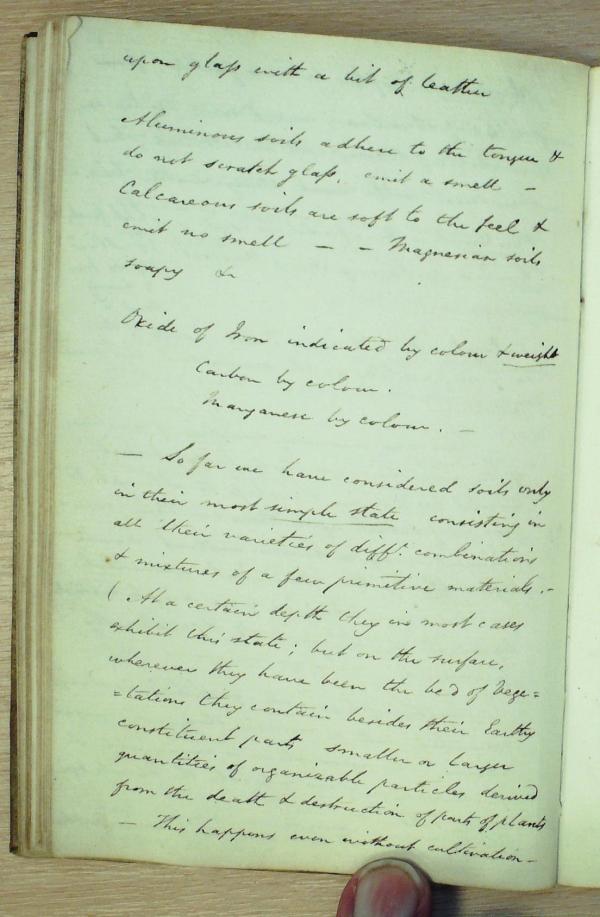 upon glass with a bit of leather
Aluminous soils adhere to the tongue &
do not scratch glass, emit a smell –
Calcareous soils are soft to the feel &
emit no smell – – Magnesian soils
soapy &c
Oxide of Iron indicated by colour & weight
Carbon by colour.
Manganese by colour. –
– So far we have considered soils only
in their most simple state consisting in
all their varieties of diff.t combinations
& mixtures of a few primitive materials. –
( At a certain depth they in most cases
exhibit this state; but on the surface,
wherever they have been the bed of Vege=
=tations they contain besides their Earthy
constituent parts smaller or larger
quantities of organizable particles derived
from the death & destruction of parts of plants
– This happens even without cultivation –